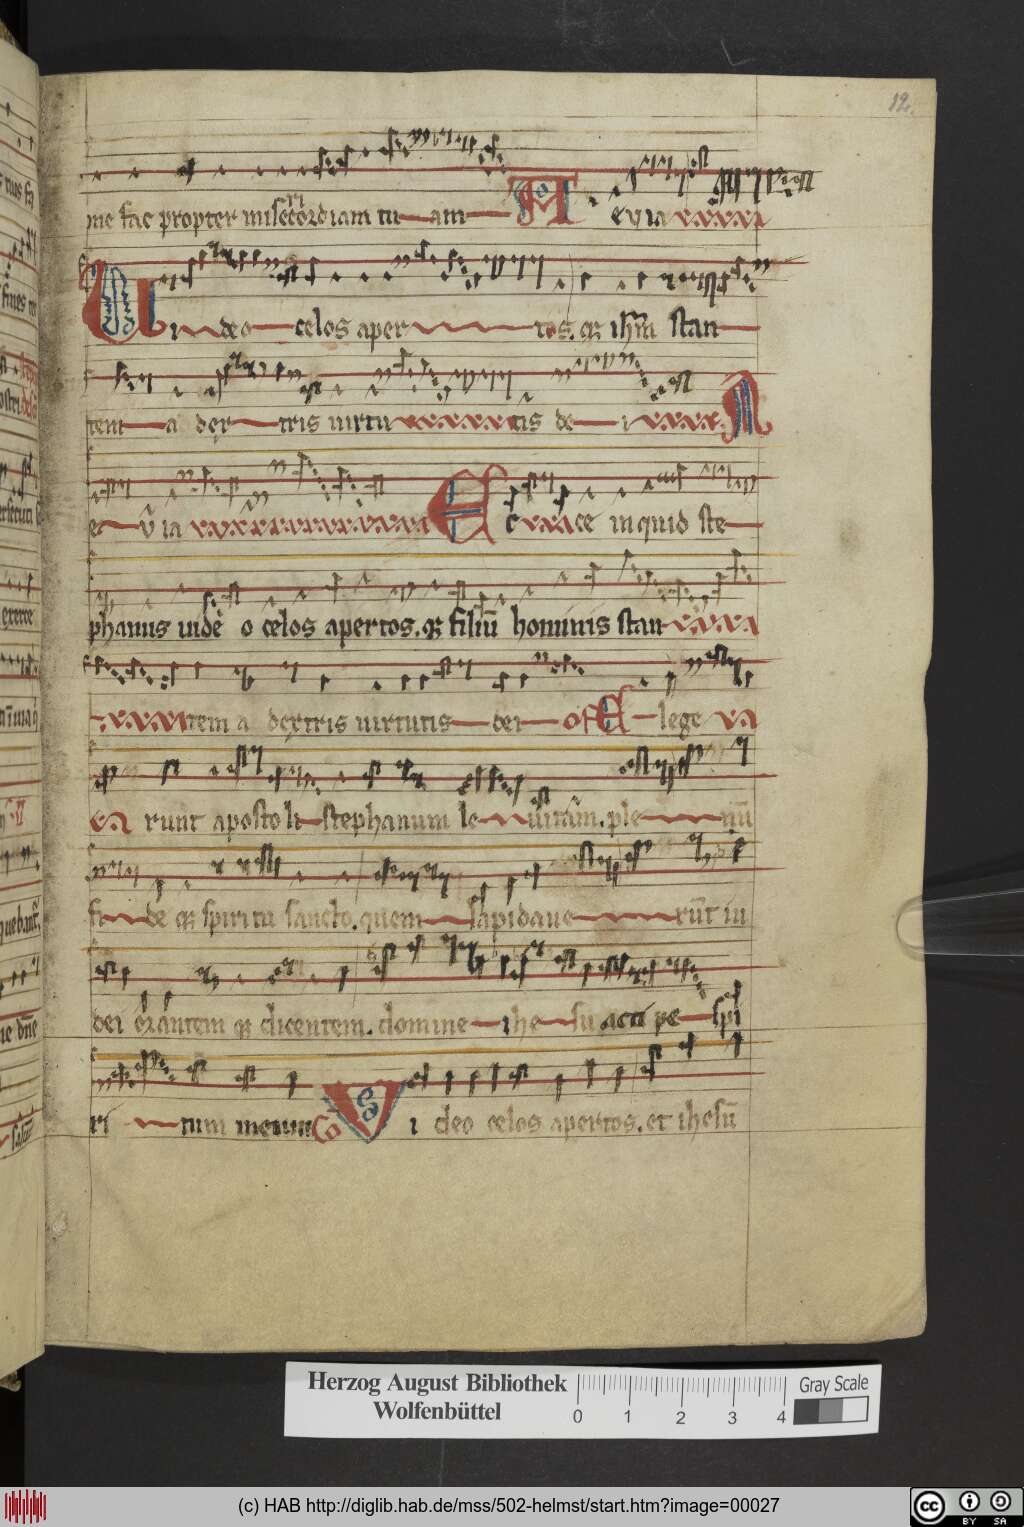 12.
me fac propter misericordiam tu am A evia
Ui deo celos aper tos. et ihm stan
tem a dex tris uirtu tis de i A
e v̄ ia E c ce inquid ste
phanus uide o celos apertos. et filiū hominis stan
tem a dextris uirtutis dei of E lege
runt apostoli stephanum le uitam. ple nū
fi de et spiritu sancto. quem lapidaue rūt iu
dei orantem et dicentem. domine ihe su acci pe spi
ri tum meum Co V i deo celos apertos. et ihesū
Herzog August Bibliothek
Wolfenbüttel
0 1 2 3 4
Gray Scale
(c) HAB http://diglib.hab.de/mss/502-helmst/start.htm?image=00027
cc BY SA